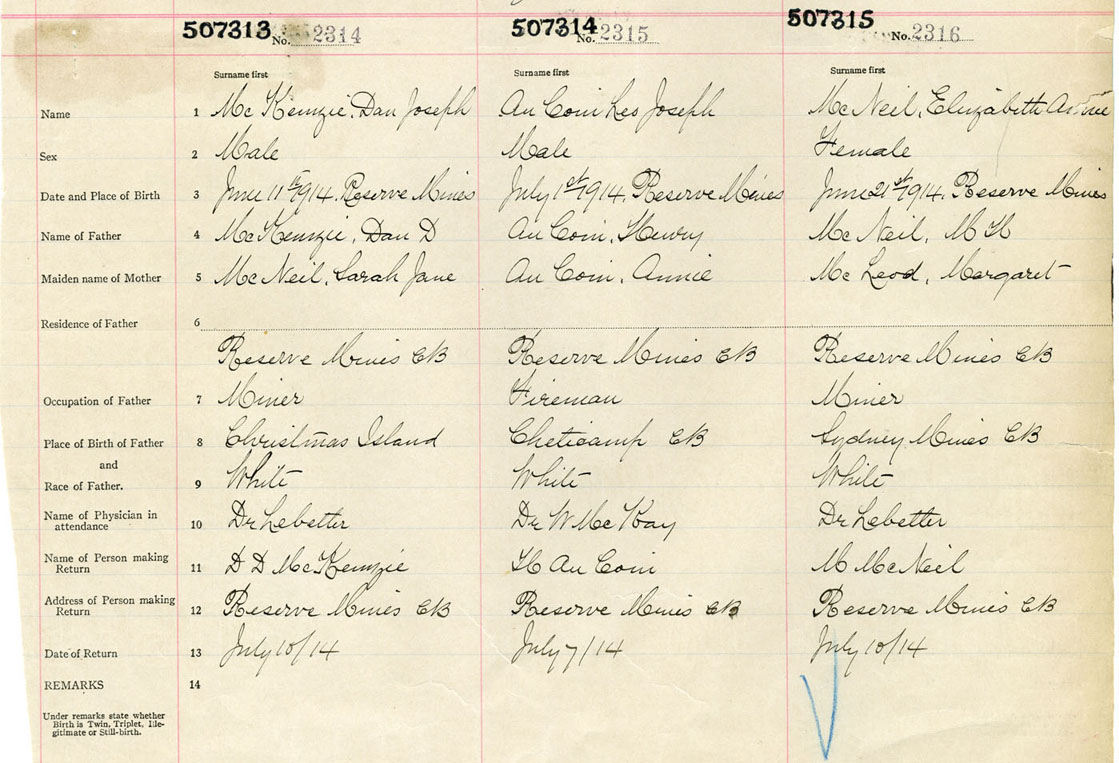 507313 No. 2314 507314 No. 2315 507315 No. 2316
Surname first Surname first Surname first
Name 1 Mc Kenzie, Dan Joseph Au Coin Leo Joseph Mc Neil, Elizabeth Annie
Sex 2 Male Male Female
Date and Place of Birth 3 June 11th 1914. Reserve Mines July 1st 1914. Reserve Mines June 21st 1914. Reserve Mines
Name of Father 4 Mc Kenzie, Dan D Au Coin, Henry Mc Neil, M H
Maiden name of Mother 5 Mc Neil, Sarah Jane Au Coin, Annie Mc Leod, Margaret
Residence of Father 6
Reserve Mines CB Reserve Mines CB Reserve Mines CB
Occupation of Father 7 Miner Fireman Miner
Place of Birth of Father 8 Christmas Island Cheticamp CB Sydney Mines CB
and
Race of Father. 9 White White White
Name of Physician in attendance 10 Dr Lebetter Dr W McKay Dr Lebetter
Name of Person making Return 11 D D McKenzie H Au Coin M McNeil
Address of Person making Return 12 Reserve Mines CB Reserve Mines CB Reserve Mines CB
Date of Return 13 July 10/14 July 7/14 July 10/14
REMARKS 14
Under remarks state whether
Birth is Twin, Triplet, Ille-
gitimate or Still-birth.